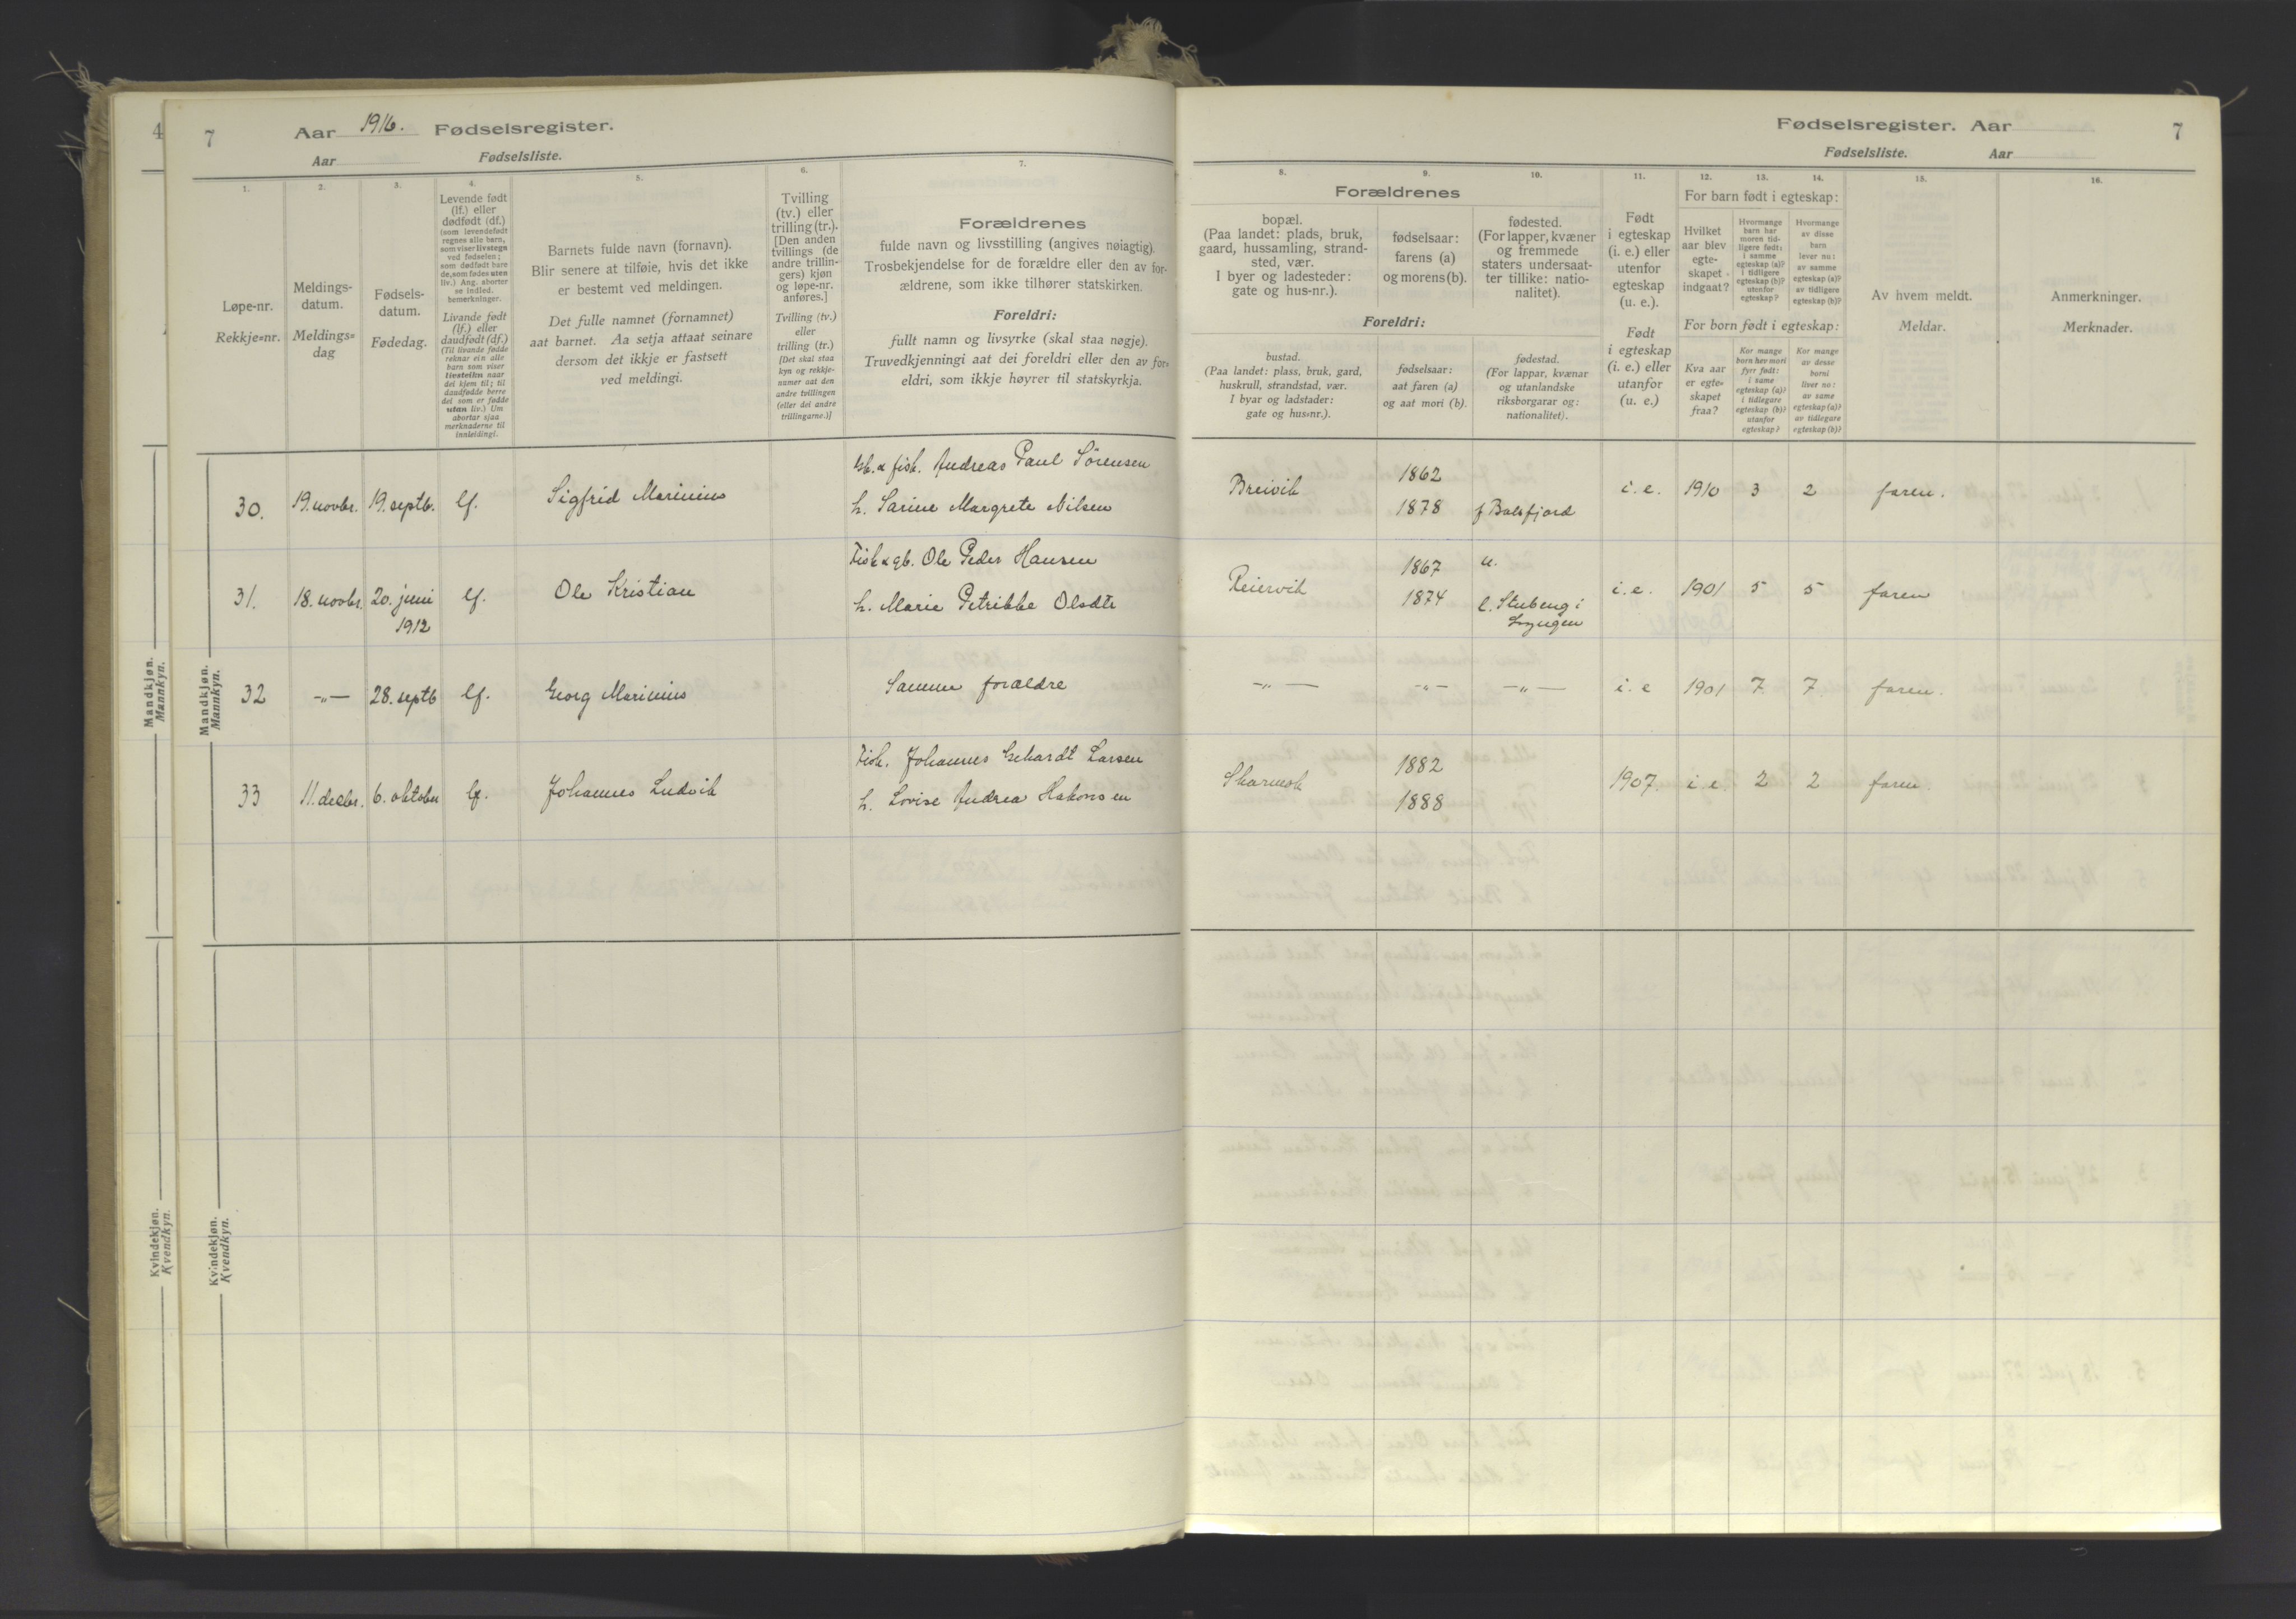 4
7 Aar 1916. Fødselsregister.
Aar Fødselsliste.
1.
Løpe-nr.
Rekkje=nr.
2.
Meldings-
datum.
Meldings=
dag
3.
Fødsels-
datum.
Fødedag.
4.
Levende født
(lf.) eller
dødfødt (df.)
(som levendefødt
regnes alle barn,
som viser livstegn
ved fødselen;
som dødfødt bare
de, som fødes uten
liv.) Ang. aborter
se indled.
bemerkninger.
Livande født
(lf.) eller
daudfødt (df.)
(Til livande fødde
reknar ein alle
barn som viser
livsteikn naar
dei kjem til; til
daudfødde berre
dei som er fødde
utan liv.) Um
abortar sjaa
merknaderne til
innleidingi.
5.
Barnets fulde navn (fornavn).
Blir senere at tilføie, hvis det ikke
er bestemt ved meldingen.
Det fulle namnet (fornamnet)
aat barnet. Aa setja attaat seinare
dersom det ikkje er fastsett
ved meldingi.
6.
Tvilling
(tv.) eller
trilling (tr.).
[Den anden
tvillings (de
andre trillin-
gers) kjøn
og løpe-nr.
anføres.]
Tvilling (tv.)
eller
trilling (tr.)
[Det skal staa
kyn og rekkje-
numer aat den
andre tvillingen
(eller dei andre
trillingarne.)]
7.
Forældrenes
fulde navn og livsstilling (angives nøiagtig).
Trosbekjendelse for de forældre eller den av for-
ældrene, som ikke tilhører statskirken.
Foreldri:
fullt namn og livsyrke (skal staa nøgje).
Truvedkjenningi aat dei foreldri eller den av for=
eldri, som ikkje høyrer til statskyrkja.
Mandkjøn.
Mannkyn.
Mandkjøn.
Mannkyn.
30. 19. novbr. 19. septb. lf. Sigfrid Marinius
Gb. & fisk. Andreas Paul Sörensen
h. Sarine Margrete Nilsen
31. 18. novbr. 20. juni
1912 lf. Ole Kristian
Fisk & gb. Ole Peder Hansen
h. Marie Petrikke Olsdtr
32 —„— 28. septb lf. Georg Marinius
Samme forældre
33 11. decbr. 6. oktober lf. Johannes Ludvik
Fisk. Johannes Gehardt Larsen
h. Lovise Andrea Hakonsen
Kvindekjøn.
Kvendkyn.
Kvindekjøn.
Kvendkyn.
Fødselsregister. Aar 7
Fødselsliste. Aar
8. 9. 10.
Forældrenes
bopæl.
(Paa landet: plads, bruk,
gaard, hussamling, strand-
sted, vær.
I byer og ladesteder:
gate og hus-nr.).
fødselsaar:
farens (a)
og morens (b).
fødested.
(For lapper, kvæner
og fremmede
staters undersaat-
ter tillike: natio-
nalitet).
Foreldri:
bustad.
(Paa landet: plass, bruk, gard,
huskrull, strandstad, vær.
I byar og ladstader:
gate og hus=nr.).
fødselsaar:
aat faren (a)
og aat mori (b).
fødestad.
(For lappar, kvænar
og utanlandske
riksborgarar og:
nationalitet).
11.
Født
i egteskap
(i. e.) eller
utenfor
egteskap
(u. e.).
Født
i egteskap
(i. e.) eller
utanfor
(u. e.)
12. 13. 14.
For barn født i egteskap:
Hvilket
aar blev
egte-
skapet
indgaat?
Hvormange
barn har
moren tid-
ligere født:
i samme
egteskap (a)?
i tidligere
egteskap (b)?
utenfor
egteskap?
Hvormange
av disse
barn
lever nu:
av samme
egteskap (a)?
av tidligere
egteskap (b)?
For born født i egteskap:
Kva aar
er egte=
skapet
fraa?
Kor mange
born hev mori
fyrr født:
i same
egteskap (a)?
i tidlegare
egteskap (b)?
utanfor
egteskap?
Kor mange
av desse
borni
liver no:
av same
egteskap (a)?
av tidlegare
egteskap (b)?
15.
Av hvem meldt.
Meldar.
16.
Anmerkninger.
Merknader.
Breivik 1862
1878 f Balsfjord i. e. 1910 3 2 faren.
Reiervik 1867 u.
1874 l. Stubeng i
Lyngen i. e. 1901 5 5 faren
—„— —„— —„— i. e 1901 7 7. faren.
Skarmok 1882
1888 1907. i. e. 2 2 faren.